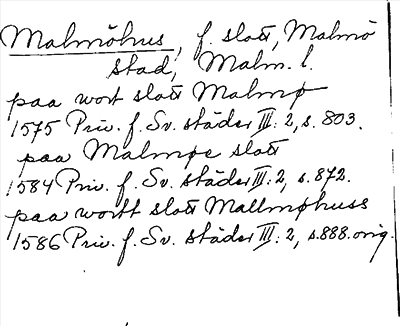 Malmöhus, f. slott, Malmö
stad, Malm. l.
paa wort slott Malmø
1575 Priv. f. Sv. städer III: 2, s. 803.
paa Malmøe slott
1584 Priv. f. Sv. städer III: 2, s. 872.
paa wortt slott Mallmøhuss
1586 Priv. f. Sv. städer III: 2, s. 888. orig.